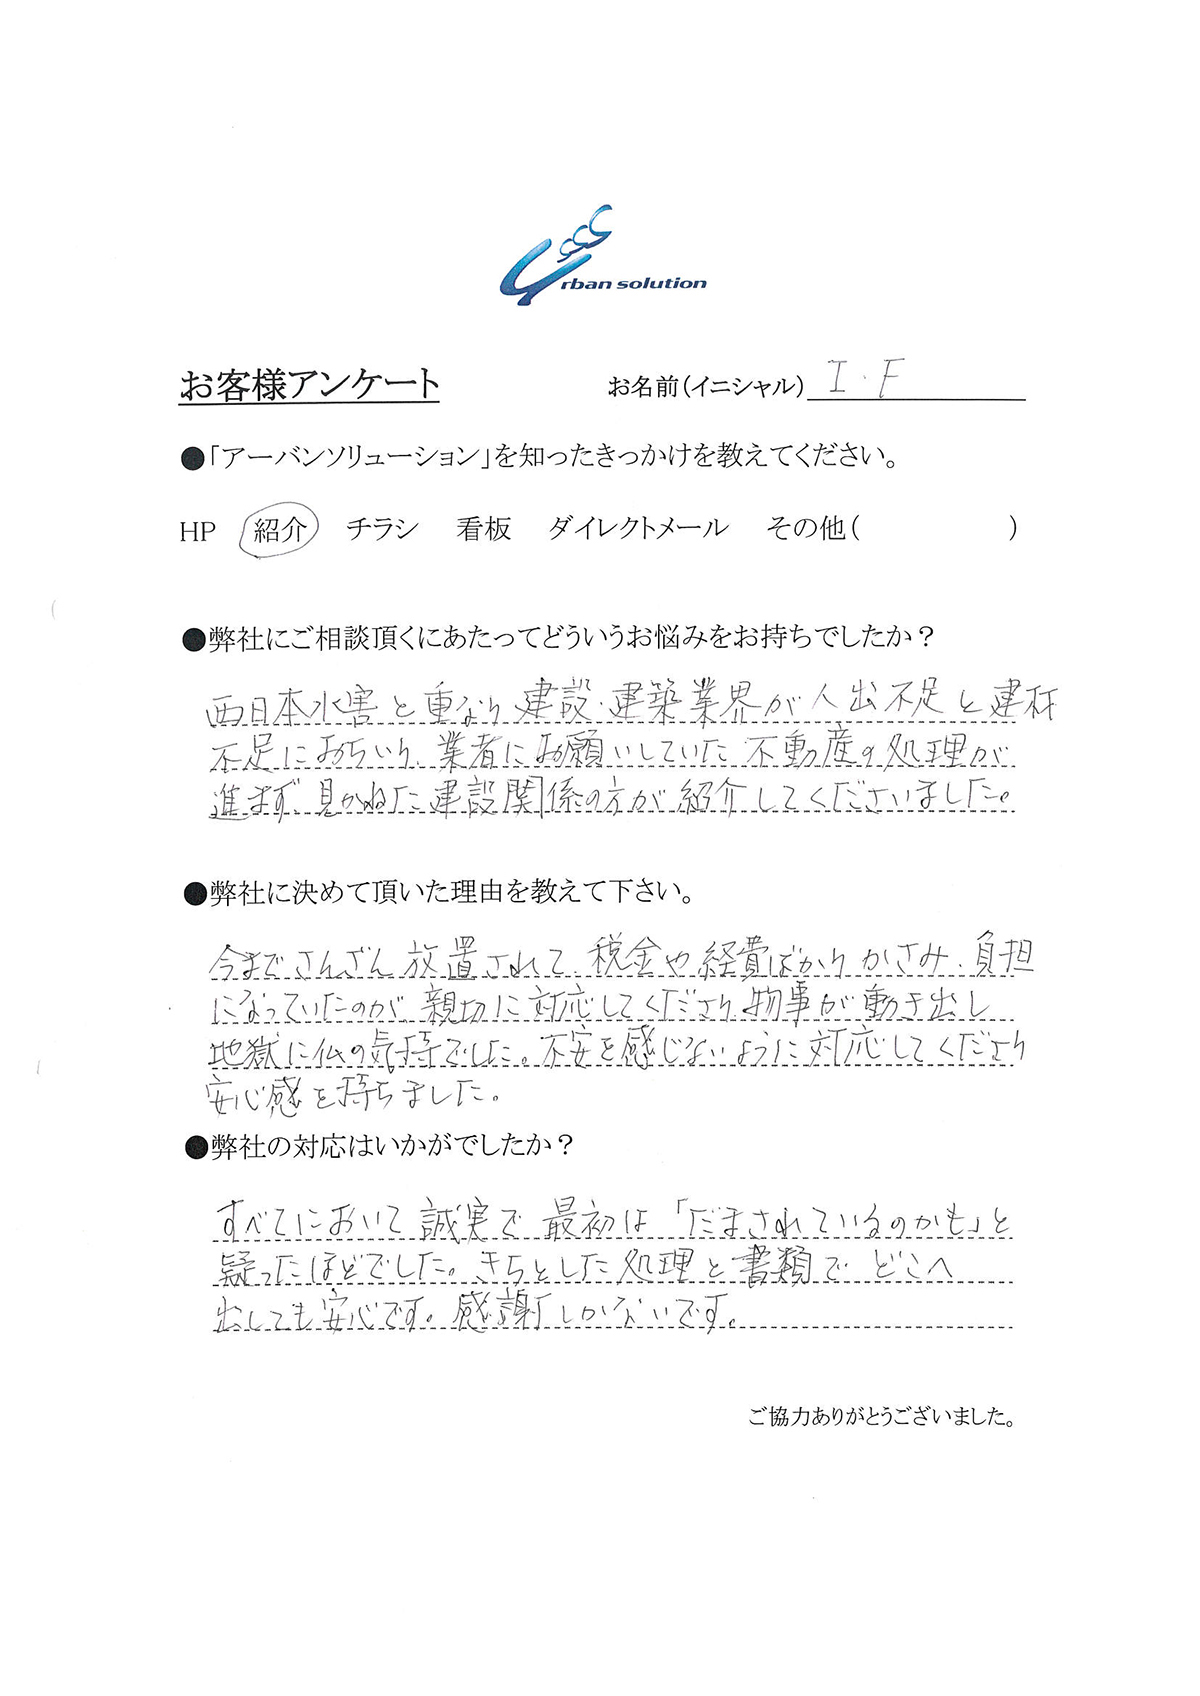 Urban solution
お客様アンケート お名前(イニシャル) I.F
●「アーバンソリューション」を知ったきっかけを教えてください。
HP 紹介 チラシ 看板 ダイレクトメール その他( )
●弊社にご相談頂くにあたってどういうお悩みをお持ちでしたか？
西日本水害と重なり建設・建築業界が人出不足と建材
不足におちいり、業者にお願いしていた不動産の処理が
進まず、見かねた建設関係の方が紹介してくださいました。
●弊社に決めて頂いた理由を教えて下さい。
今までさんざん放置されて、税金や経費ばかりかさみ、負担
になっていたのが、親切に対応してくださり、物事が動き出し
地獄に仏の気持でした。不安を感じないように対応してくださり
安心感を持ちました。
●弊社の対応はいかがでしたか？
すべてにおいて誠実で最初は「だまされているのかも」と
疑ったほどでした。きちとした処理と書類でどこへ
出しても安心です。感謝しかないです。
ご協力ありがとうございました。